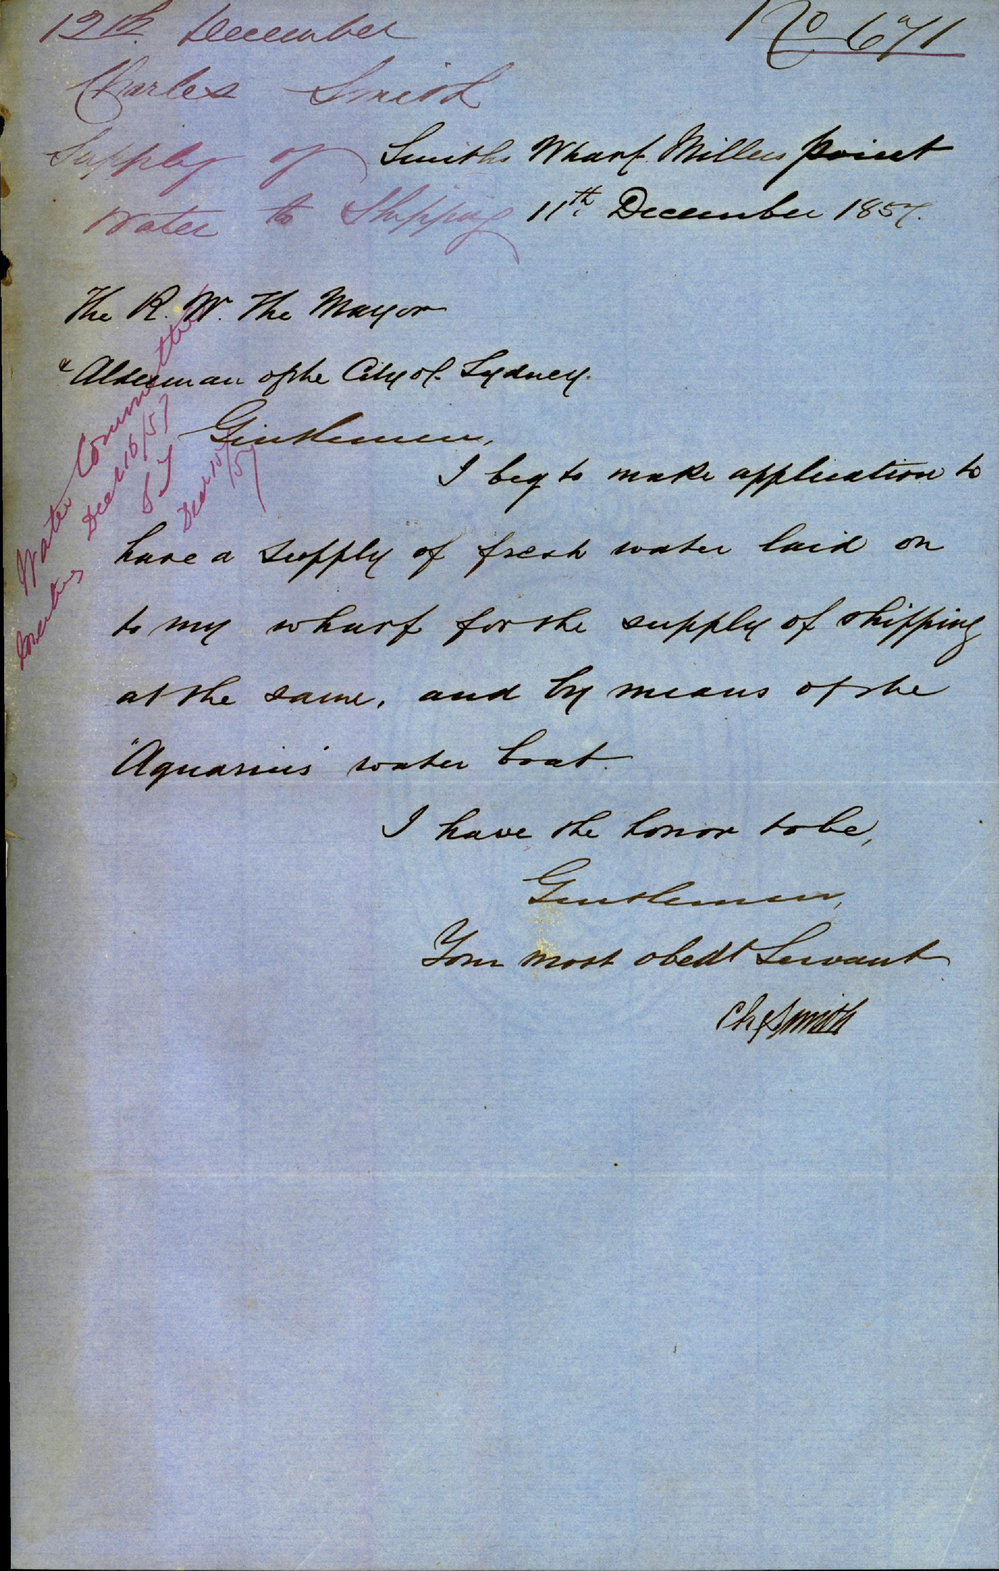 12th. December
No 671
Charles Smith
Supply of
Water to Shipping
Smiths Wharf. Millers Point
11th. December 1857.
The R. W. The Mayor
& Alderman of the City of Sydney.
Water Committee
Decr 15/57
Decr 15/57
Gentlemen,
I beg to make application to
have a supply of fresh water laid on
to my wharf for the supply of shipping
at the same, and by means of the
"Aquarius" water boat.
I have the honor to be,
Gentlemen,
Your most obedt Servant
Chs Smith